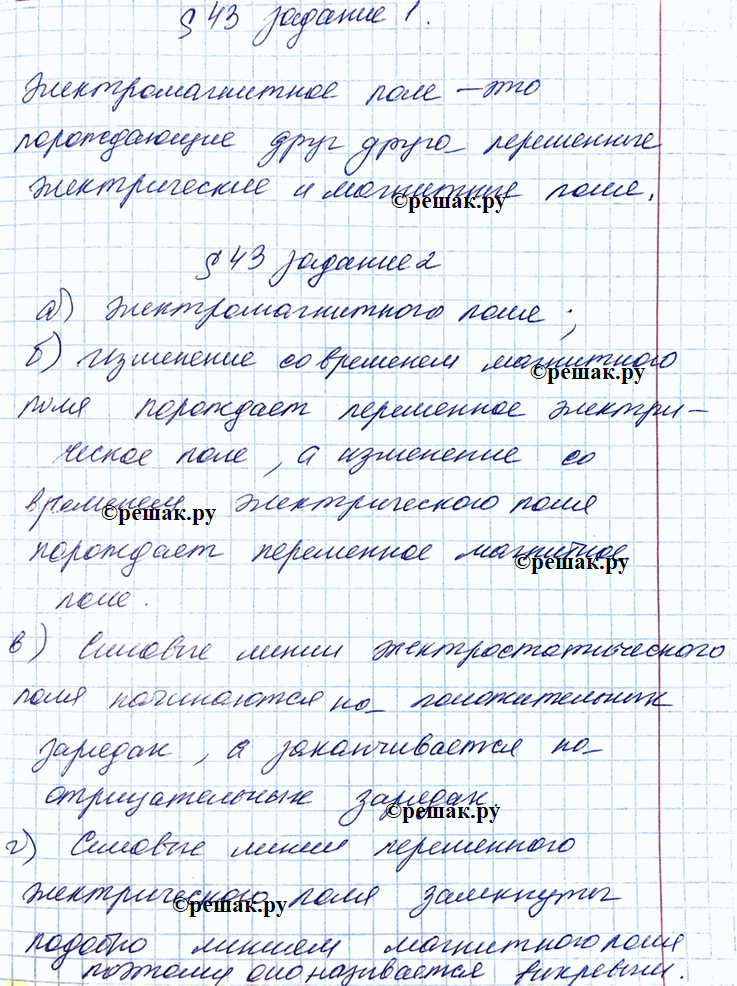 § 43 задание 1.
Электромагнитное поле – это
порождающие друг друга переменные
электрические и магнитные поле.
©решак.ру
§ 43 задание 2
а) электромагнитного поле;
б) Изменение со временем магнитного
©решак.ру
поля порождает переменное электри-
ческое поле, а изменение со
временем электрического поля
©решак.ру
порождает переменное магнитное
©решак.ру
поле.
в) Силовые линии электростатического
поля начинаются на положительных
зарядах, а заканчивается на
отрицательных зарядах.
©решак.ру
г) Силовые линии переменного
электрического поля замкнуты
©решак.ру
подобно линием магнитного поля
поэтому оно называется вихревым.